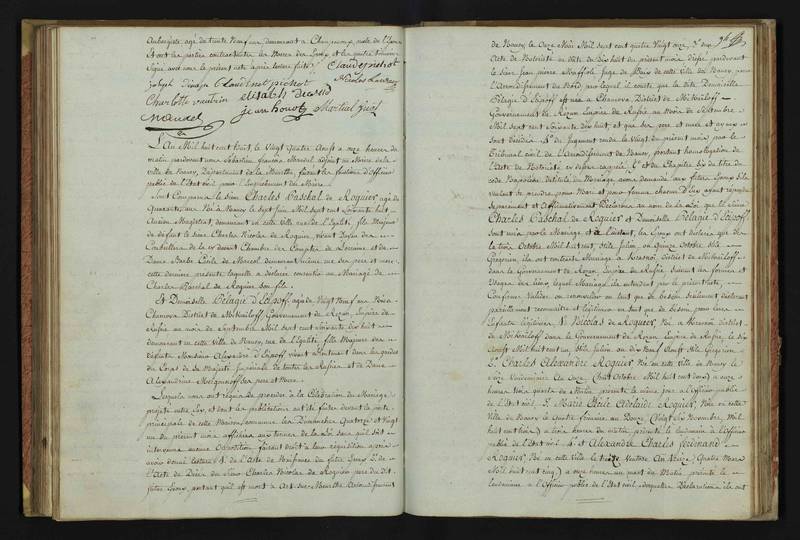 Aubergiste agé de trente Neuf ans demeurant à
Signé avec nous le présent acte après lecture faite
Claudepierot
Joseph Claudinet pierrot Nicolas
Charlotte vautrin Elisabeth
Mandel Jean Martial
L'An Mil huit cent huit le Vingt quatre Aoust a onze heures du
matin pardevant nous Sebastien françois Mandel adjoint au Maire de la
ville de Nancy, Département de la Meurthe, faisant les fonctions d'officier
public de l'Etat civil pour l'empechement du Maire
Sont Comparus le Sieur Charles Paschal de Roguier agé de
quarante ans Né à Nancy le sept Juin Mil sept cent soixante huit
Ancien Magistrat, demeurant en cette ville rue de l'Egalité, fils Majeur
de défunt le sieur Charles Nicolas de Roguier, vivant Doyen des
Conseillers de la cy devant Chambre des Comptes de Lorraine et de
Dame Barbe Cécile de Marcol demeurant même rue ses pere et mere
cette derniere présente laquelle a déclaré consentir au Mariage de
Charles Paschal de Roguier son fils
Et Demoiselle Pélagie D'Epoff, agée de Vingt Neuf ans Née à
Chanova District de Mikailoff Gouvernement de Rezan, Empire de
Russie au mois de Septembre Mil sept cent soixante dix huit
demeurant en cette Ville de Nancy, rue de l'Egalité, fille Majeure de
défunts Monsieur Alexandre d'Epoff vivant Lieutenant dans les gardes
du Corps de Sa Majesté Impériale de toutes les Russies et de Dame
Alexandrine ses pere et mere
Lesquels nous ont requis de proceder à la Célébration du Mariage
projetté entre eux, et dont les publications ont été faites devant la porte
principale de cette Maison commune les Dimanches Quatorze et Vingt
un du présent mois affichées aux termes de la Loi sans qu'il soit
intervenu aucune Opposition faisant droit à leur réquisition après
avoir donné lecture 1° de l'Acte de Naissance du futur Epoux 2° de
l'Acte de Décès du Sieur Charles Nicolas de Roguier pere du dit
futur Epoux, portant qu'il est mort à Art sur Meurthe Arrondissement
de Nancy le Onze Mai Mil sept cent quatre Vingt onze, 3° d'un
Acte de Notoriété en date du Dix huit du présent mois dressé pardevant
le Sieur Jean pierre Maffioli Juge de Paix de cette ville de Nancy, pour
l'Arrondissement du Nord, par lequel il conste que la dite Demoiselle
Pélagie D'Epoff est née à Chanova District de Mikailoff
Gouvernement de Rezan Empire de Russie au mois de Septembre
Mil sept cent soixante dix huit, et que ses pere et mere et ayeux
sont décédés 4° du Jugement rendu le Vingt du présent mois par le
Tribunal civil de l'Arrondissement de Nancy, portant homologation de
l'Acte de Notoriété ci dessus rappelé 5° et du Chapitre six du titre du
code Napoléon intitulé du Mariage, avons demandé aux futurs Epoux s'ils
veulent se prendre pour Mari et pour femme chacun d'eux ayant répondu
séparement et Affirmativement Déclarons au nom de la Loi que le Sieur
Charles Paschal de Roguier et Demoiselle Pélagie D'Epoff
sont unis par le Mariage et à l'instant, les Epoux ont déclaré que dès
le trois Octobre Mil huit cent, stile Julien, ou Quinze Octobre stile
Grégorien, ils ont contracté Mariage à District de Mikailoff
dans le Gouvernement de Rezan, Empire de Russie, suivant les formes et
Usages des lieux, lequel Mariage ils entendent par le présent acte,
Confirmer Valider ou renouveller en tant que de besoin seulement déclarant
pareillement reconnaitre et légitimer en tant que de besoin pour leurs
Enfants légitimes, 1° Nicolas de Roguier, Né à District
de Mikailoff dans le Gouvernement de Rezan Empire de Russie, le six
Aoust Mil huit cent un stile Julien ou dix huit Aoust stile Gregorien
2° Charles Alexandre Roguier, Né en cette ville de Nancy le
Seize Vendémiaire An onze (huit Octobre Mil huit cent deux) à onze
heures trois quarts du Matin, présenté le même jour à l'officier public
de l'Etat civil 3° Marie Cécile Adélaïde Roguier, Née en cette
Ville de Nancy le quatre frimaire An Douze (Vingt six Novembre Mil
huit cent trois) à trois heures du matin présentée le lendemain à l'Officier
public de l'Etat civil 4° et Alexandre Charles ferdinand
Roguier, Né en cette Ville le treize Ventose An Treize (Quatre Mars
Mil huit cent cinq) à onze heures un quart du Matin, présenté le
lendemain à l'Officier public de l'Etat civil, desquelles Déclarations ils ont